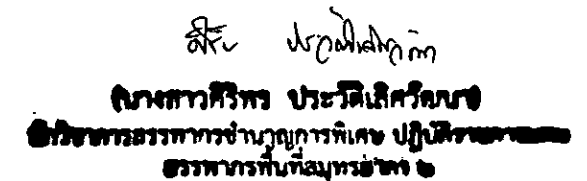 (นางสาวศิริพร ประวัติเลิศวัฒนา)
นักวิชาการสรรพากรชำนาญการพิเศษ ปฏิบัติราชการแทน
สรรพากรพื้นที่สมุทรปราการ ๒